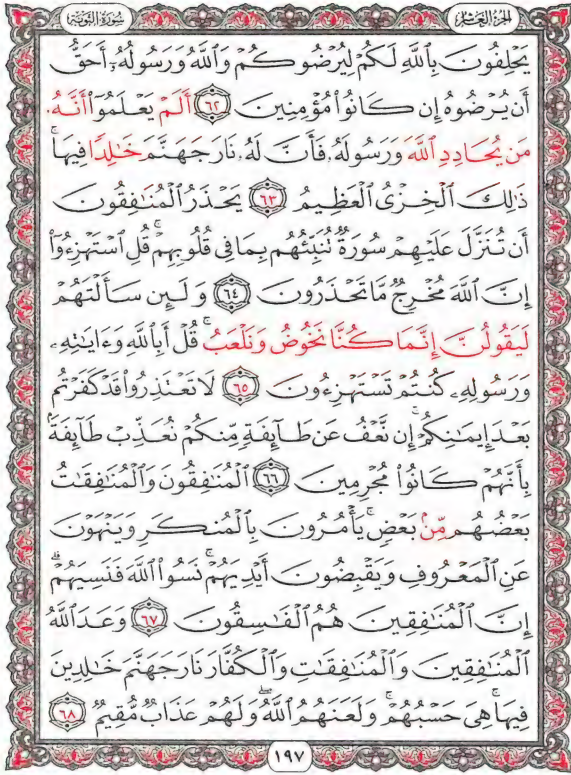 الجزء العاشر سورة التوبة
يَحْلِفُونَ بِٱللَّهِ لَكُمْ لِيُرْضُوكُمْ وَٱللَّهُ وَرَسُولُهُۥٓ أَحَقُّ
أَن يُرْضُوهُ إِن كَانُوا۟ مُؤْمِنِينَ ٦٢ أَلَمْ يَعْلَمُوٓا۟ أَنَّهُۥ
مَن يُحَادِدِ ٱللَّهَ وَرَسُولَهُۥ فَأَنَّ لَهُۥ نَارَ جَهَنَّمَ خَٰلِدًا فِيهَا ۚ
ذَٰلِكَ ٱلْخِزْىُ ٱلْعَظِيمُ ٦٣ يَحْذَرُ ٱلْمُنَٰفِقُونَ
أَن تُنَزَّلَ عَلَيْهِمْ سُورَةٌ تُنَبِّئُهُم بِمَا فِى قُلُوبِهِمْ ۚ قُلِ ٱسْتَهْزِءُوٓا۟
إِنَّ ٱللَّهَ مُخْرِجٌ مَّا تَحْذَرُونَ ٦٤ وَلَئِن سَأَلْتَهُمْ
لَيَقُولُنَّ إِنَّمَا كُنَّا نَخُوضُ وَنَلْعَبُ ۚ قُلْ أَبِٱللَّهِ وَءَايَٰتِهِۦ
وَرَسُولِهِۦ كُنتُمْ تَسْتَهْزِءُونَ ٦٥ لَا تَعْتَذِرُوا۟ قَدْ كَفَرْتُم
بَعْدَ إِيمَٰنِكُمْ ۚ إِن نَّعْفُ عَن طَآئِفَةٍ مِّنكُمْ نُعَذِّبْ طَآئِفَةًۢ
بِأَنَّهُمْ كَانُوا۟ مُجْرِمِينَ ٦٦ ٱلْمُنَٰفِقُونَ وَٱلْمُنَٰفِقَٰتُ
بَعْضُهُم مِّنۢ بَعْضٍ ۚ يَأْمُرُونَ بِٱلْمُنكَرِ وَيَنْهَوْنَ
عَنِ ٱلْمَعْرُوفِ وَيَقْبِضُونَ أَيْدِيَهُمْ ۚ نَسُوا۟ ٱللَّهَ فَنَسِيَهُمْ ۗ
إِنَّ ٱلْمُنَٰفِقِينَ هُمُ ٱلْفَٰسِقُونَ ٦٧ وَعَدَ ٱللَّهُ
ٱلْمُنَٰفِقِينَ وَٱلْمُنَٰفِقَٰتِ وَٱلْكُفَّارَ نَارَ جَهَنَّمَ خَٰلِدِينَ
فِيهَا ۚ هِىَ حَسْبُهُمْ ۚ وَلَعَنَهُمُ ٱللَّهُ ۖ وَلَهُمْ عَذَابٌ مُّقِيمٌ ٦٨
١٩٧